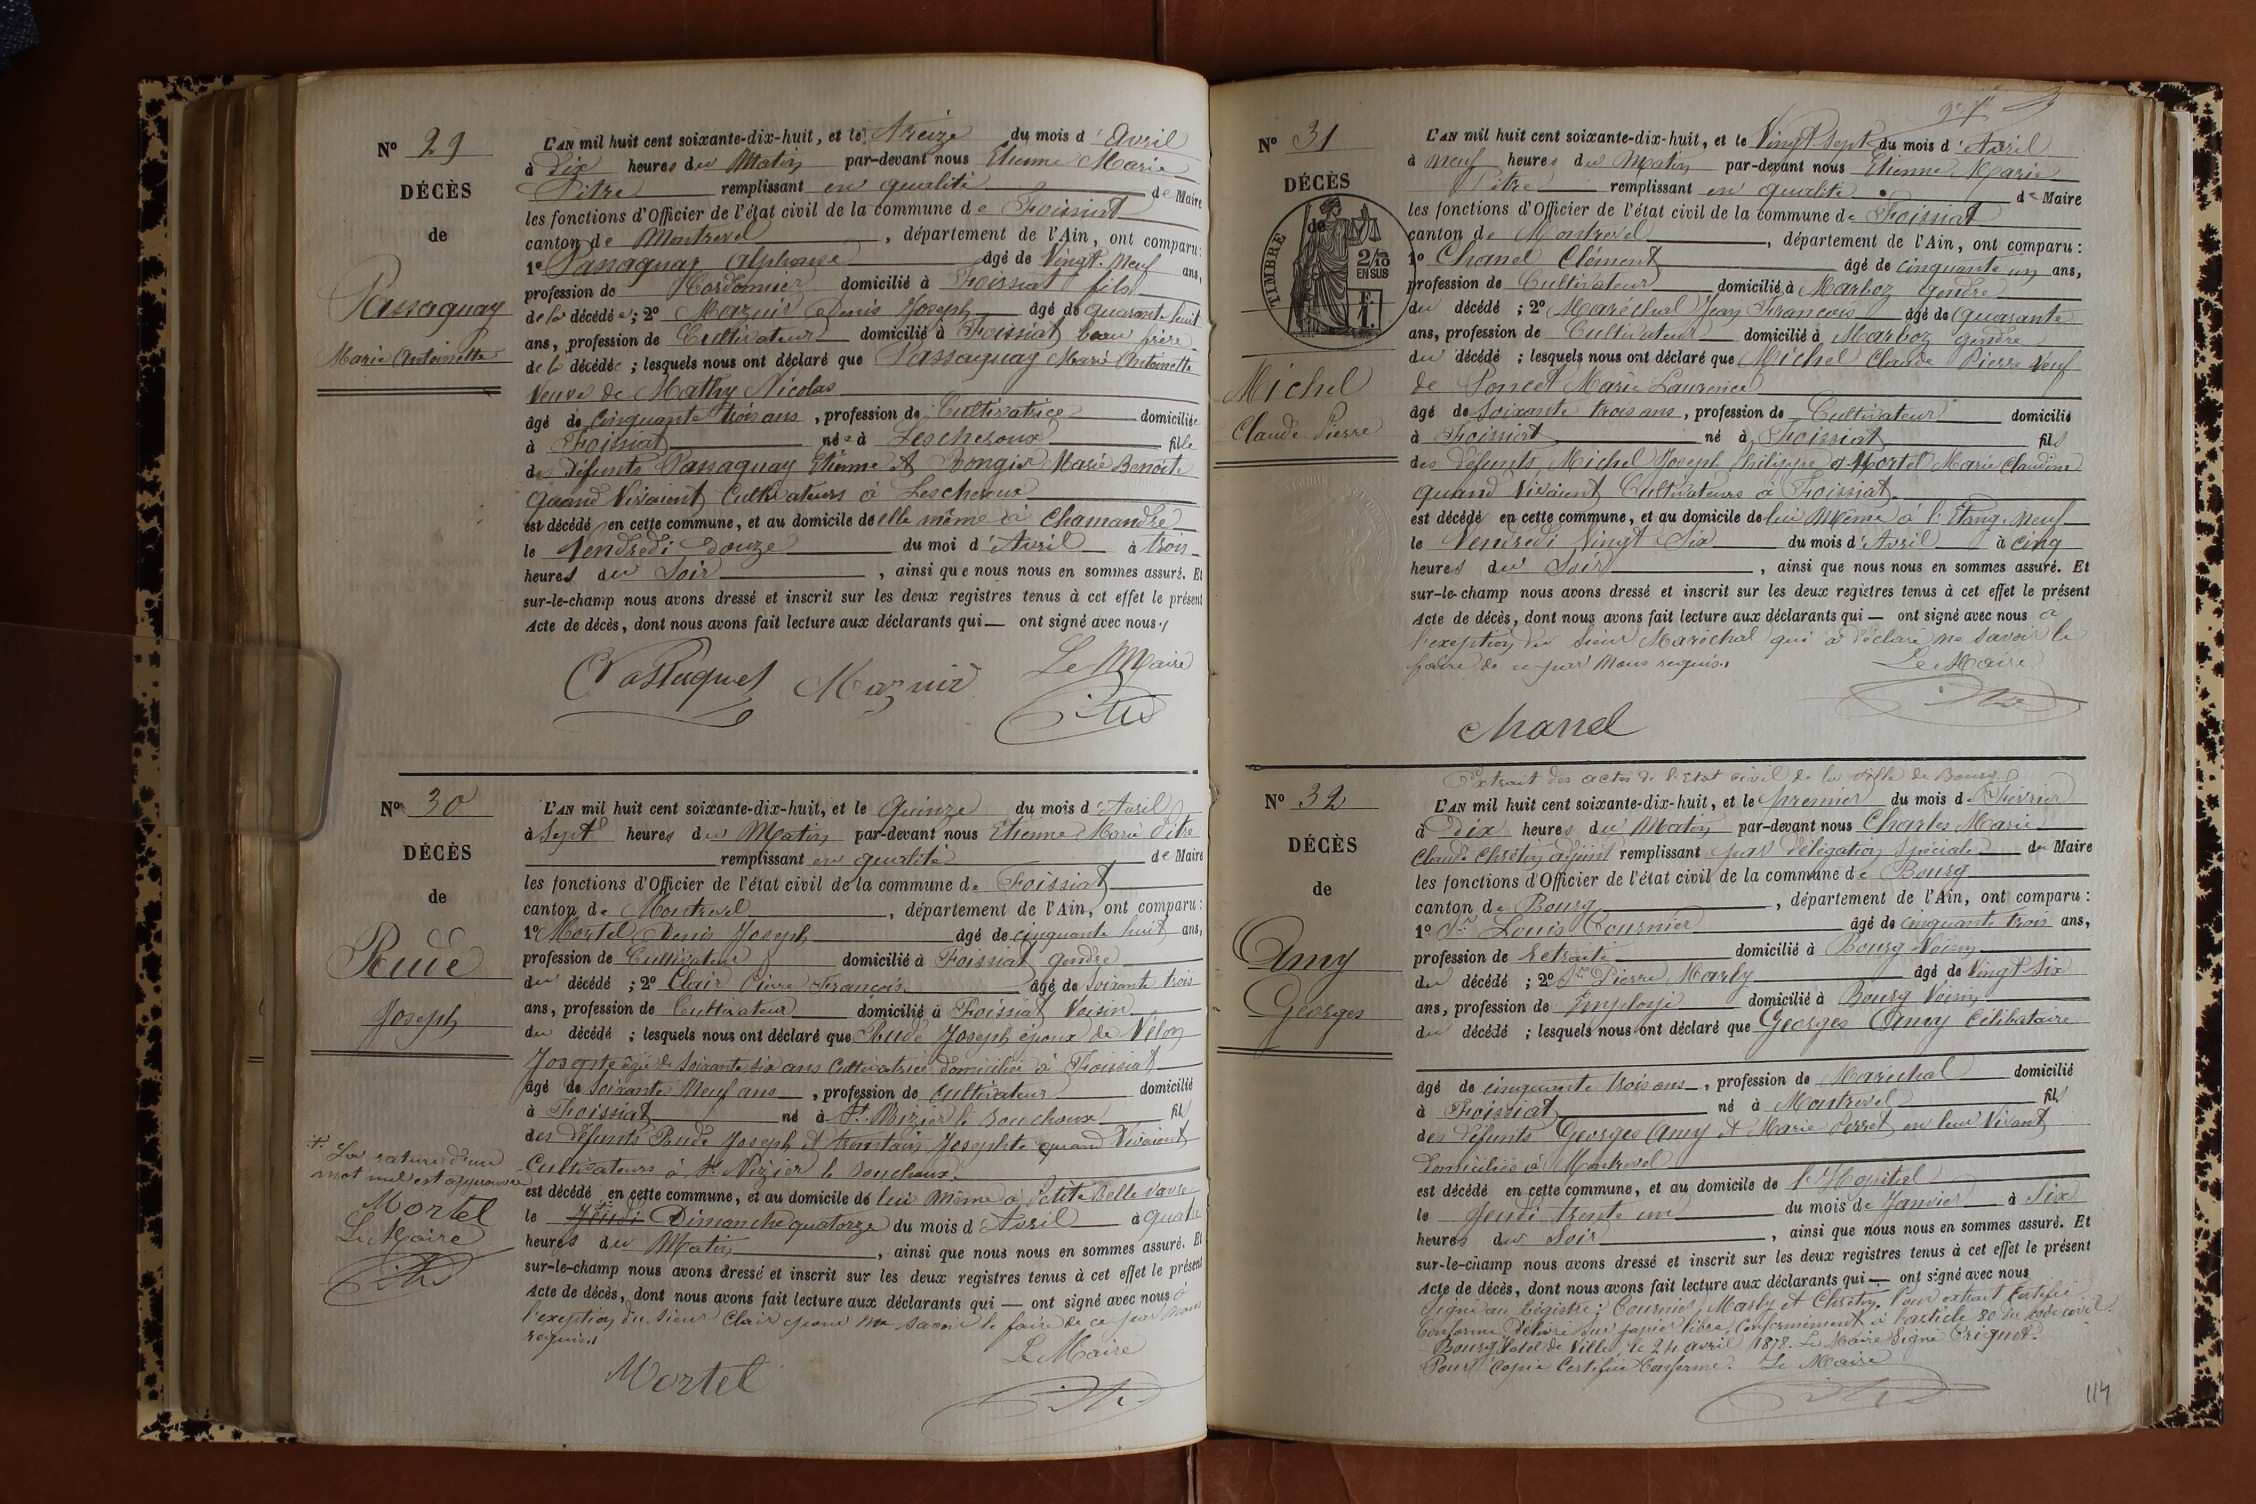 Nº 29
DÉCÈS
de
Passaguay
Marie Antoinette
L'AN mil huit cent soixante-dix-huit, et le Treize du mois d'Avril
à Dix heures du Matin par-devant nous Etienne Marie
Pitre remplissant en qualité de Maire
les fonctions d'Officier de l'état civil de la commune de Foissiat
canton de Montrevel, département de l'Ain, ont comparu:
1º Passaguay Alphonse âgé de Vingt-Neuf ans,
profession de Cordonnier domicilié à Foissiat fils
de la décédée; 2º Mazuir Denis Joseph âgé de quarante huit
ans, profession de Cultivateur domicilié à Foissiat beau frère
de la décédée; lesquels nous ont déclaré que Passaguay Marie Antoinette
Veuve de Mathy Nicolas
âgé de cinquante trois ans, profession de Cultivatrice domiciliée
à Foissiat née à Lescheroux fille
des défunts Passaguay Etienne et Rongier Marie Benoite
quand Vivaient Cultivateurs à Lescheroux
est décédé en cette commune, et au domicile de elle même à Chamandre
le Vendredi Douze du moi d'Avril à trois
heures du Soir, ainsi que nous nous en sommes assuré. Et
sur-le-champ nous avons dressé et inscrit sur les deux registres tenus à cet effet le présent
Acte de décès, dont nous avons fait lecture aux déclarants qui — ont signé avec nous.
Le Maire
Mazuir
Pitre
Nº 30
DÉCÈS
de
Rude
Joseph
L'AN mil huit cent soixante-dix-huit, et le Quinze du mois d'Avril
à Sept heures du Matin par-devant nous Etienne Marie Pitre
remplissant en qualité de Maire
les fonctions d'Officier de l'état civil de la commune de Foissiat
canton de Montrevel, département de l'Ain, ont comparu:
1º Mortel Denis Joseph âgé de cinquante huit ans,
profession de Cultivateur domicilié à Foissiat gendre
du décédé; 2º Clair Pierre François âgé de Soixante trois
ans, profession de Cultivateur domicilié à Foissiat Voisin
du décédé; lesquels nous ont déclaré que Rude Joseph époux de Vélon
Josepte âgée de Soixante dix ans Cultivatrice domiciliée à Foissiat
âgé de Soixante Neuf ans, profession de Cultivateur domicilié
à Foissiat né à St Nizier le Bouchoux fils
des défunts Rude Joseph et Josephte quand Vivaient
Cultivateurs à St Nizier le Bouchoux.
est décédé en cette commune, et au domicile de lui Même à Petite Belle
le Jeudi Dimanche quatorze du mois d'Avril à quatre
heures du Matin, ainsi que nous nous en sommes assuré. Et
sur-le-champ nous avons dressé et inscrit sur les deux registres tenus à cet effet le présent
Acte de décès, dont nous avons fait lecture aux déclarants qui — ont signé avec nous à
l'exeption du Sieur Clair pour ne savoir le faire de ce par nous
requis.
Le Maire
Mortel
Pitre
La rature d'un
mot nul est approuvée
Mortel
Le Maire
Pitre
Nº 31
DÉCÈS
de
TIMBRE
2/10
EN SUS
F.
1.
Michel
Claude Pierre
L'AN mil huit cent soixante-dix-huit, et le Vingt-Sept du mois d'Avril
à Neuf heures du Matin par-devant nous Etienne Marie
Pitre remplissant en qualité de Maire
les fonctions d'Officier de l'état civil de la commune de Foissiat
canton de Montrevel, département de l'Ain, ont comparu:
1º Chanel Clément âgé de cinquante un ans,
profession de Cultivateur domicilié à Marboz gendre
du décédé; 2º Maréchal Jean François âgé de quarante
ans, profession de Cultivateur domicilié à Marboz gendre
du décédé; lesquels nous ont déclaré que Michel Claude Pierre Veuf
de Poncet Marie Laurence
âgé de Soixante trois ans, profession de Cultivateur domicilié
à Foissiat né à Foissiat fils
des défunts Michel Joseph Philippe et Mortel Marie Claudine
quand Vivaient Cultivateurs à Foissiat.
est décédé en cette commune, et au domicile de lui Même à l'Etang Neuf
le Vendredi Vingt Six du mois d'Avril à Cinq
heures du Soir, ainsi que nous nous en sommes assuré. Et
sur-le-champ nous avons dressé et inscrit sur les deux registres tenus à cet effet le présent
Acte de décès, dont nous avons fait lecture aux déclarants qui — ont signé avec nous a
l'exeption du Sieur Maréchal qui a déclaré ne savoir le
faire de ce par Nous requis.
Le Maire
Pitre
Chanel
Nº 32
DÉCÈS
de
Amy
Georges
Extrait des actes de l'Etat civil de la ville de Bourg
L'AN mil huit cent soixante-dix-huit, et le premier du mois de Février
à Dix heures du Matin par-devant nous Charles Marie
Claude Chrétin adjoint remplissant par délégation spéciale du Maire
les fonctions d'Officier de l'état civil de la commune de Bourg
canton de Bourg, département de l'Ain, ont comparu:
1º Sr Louis Cournier âgé de cinquante trois ans,
profession de Retraité domicilié à Bourg Voisin
du décédé; 2º Sr Pierre Marly âgé de Vingt Six
ans, profession de Employé domicilié à Bourg Voisin
du décédé; lesquels nous ont déclaré que Georges Amy Célibataire
âgé de cinquante trois ans, profession de Maréchal domicilié
à Foissiat né à Montrevel fils
des défunts Georges Amy et Marie Perret en leur Vivant
domiciliés à Montrevel
est décédé en cette commune, et au domicile de l'Hopital
le Jeudi trente un du mois de Janvier à Six
heures du Soir, ainsi que nous nous en sommes assuré. Et
sur-le-champ nous avons dressé et inscrit sur les deux registres tenus à cet effet le présent
Acte de décès, dont nous avons fait lecture aux déclarants qui — ont signé avec nous
Signé au Registre: Cournier, Marly et Chrétin. Pour extrait Certifié
Conforme Délivré sur papier libre, Conformément à l'article 80 du code civil.
Bourg Hotel de Ville, le 24 avril 1878. Le Maire Signé
Pour Copie Certifiée Conforme. Le Maire
Pitre
114